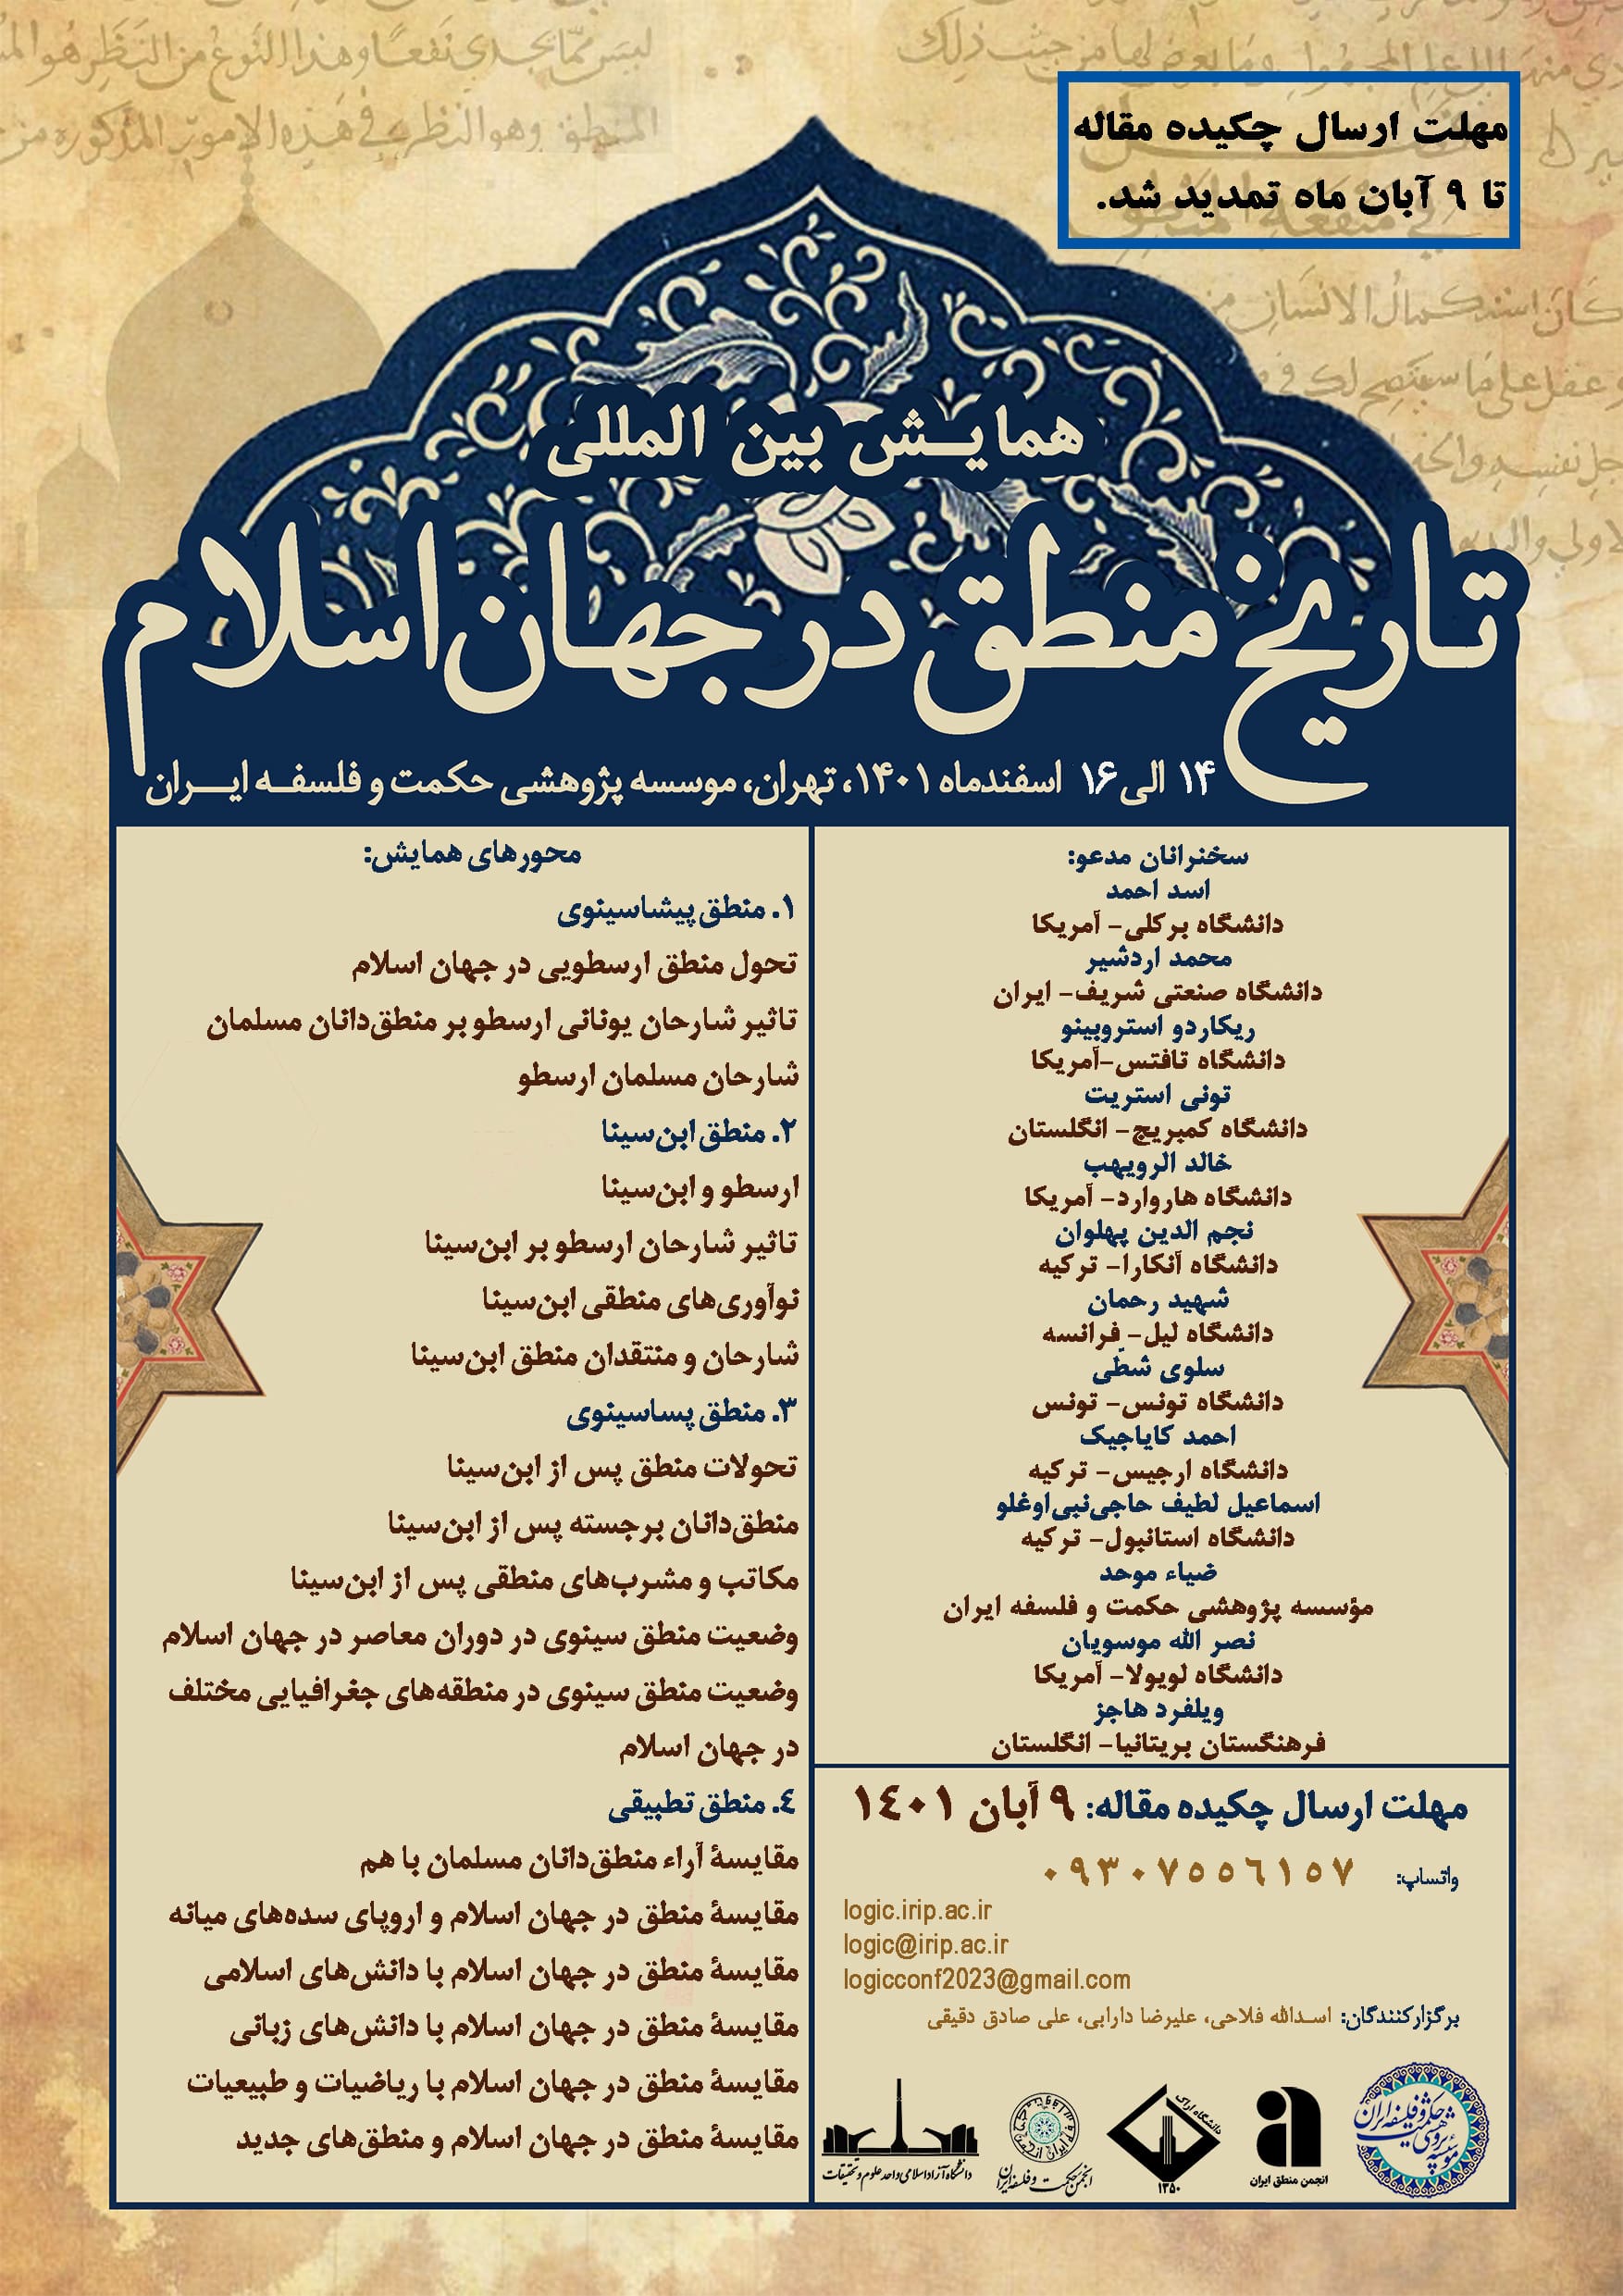 مهلت ارسال چکیده مقاله
تا ۹ آبان ماه تمدید شد.
همایش بین المللی
تاریخ منطق در جهان اسلام
۱۴ الی ۱۶ اسفندماه ۱۴۰۱، تهران، موسسه پژوهشی حکمت و فلسفه ایران
سخنرانان مدعو:
اسد احمد
دانشگاه برکلی- آمریکا
محمد اردشیر
دانشگاه صنعتی شریف- ایران
ریکاردو استروبینو
دانشگاه تافتس-آمریکا
تونی استریت
دانشگاه کمبریج- انگلستان
خالد الرویهب
دانشگاه هاروارد- آمریکا
نجم الدین پهلوان
دانشگاه آنکارا- ترکیه
شهید رحمان
دانشگاه لیل- فرانسه
سلوی شطّی
دانشگاه تونس- تونس
احمد کایاجیک
دانشگاه ارجیس- ترکیه
اسماعیل لطیف حاجی‌نبی‌اوغلو
دانشگاه استانبول- ترکیه
ضیاء موحد
مؤسسه پژوهشی حکمت و فلسفه ایران
نصر الله موسویان
دانشگاه لویولا- آمریکا
ویلفرد هاجز
فرهنگستان بریتانیا- انگلستان
مهلت ارسال چکیده مقاله: ۹ آبان ۱٤۰۱
واتساپ: ۰۹۳۰۷۵۵٦۱۵۷
logic.irip.ac.ir
logic@irip.ac.ir
logicconf2023@gmail.com
برگزارکنندگان: اسدالله فلاحی، علیرضا دارابی، علی صادق دقیقی
موسسه پژوهشی حکمت و فلسفه ایران
انجمن منطق ایران
دانشگاه اراک
۱۳۵۰
انجمن حکمت و فلسفه ایران
دانشگاه آزاد اسلامی واحد علوم و تحقیقات
محورهای همایش:
۱. منطق پیشاسینوی
تحول منطق ارسطویی در جهان اسلام
تاثیر شارحان یونانی ارسطو بر منطق‌دانان مسلمان
شارحان مسلمان ارسطو
۲. منطق ابن‌سینا
ارسطو و ابن‌سینا
تاثیر شارحان ارسطو بر ابن‌سینا
نوآوری‌های منطقی ابن‌سینا
شارحان و منتقدان منطق ابن‌سینا
۳. منطق پساسینوی
تحولات منطق پس از ابن‌سینا
منطق‌دانان برجسته پس از ابن‌سینا
مکاتب و مشرب‌های منطقی پس از ابن‌سینا
وضعیت منطق سینوی در دوران معاصر در جهان اسلام
وضعیت منطق سینوی در منطقه‌های جغرافیایی مختلف
در جهان اسلام
٤. منطق تطبیقی
مقایسهٔ آراء منطق‌دانان مسلمان با هم
مقایسهٔ منطق در جهان اسلام و اروپای سده‌های میانه
مقایسهٔ منطق در جهان اسلام با دانش‌های اسلامی
مقایسهٔ منطق در جهان اسلام با دانش‌های زبانی
مقایسهٔ منطق در جهان اسلام با ریاضیات و طبیعیات
مقایسهٔ منطق در جهان اسلام و منطق‌های جدید